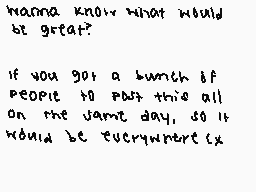 wanna know what would
be great?
if you got a bunch of
people to post this all
on the same day, so it
would be everywhere (x